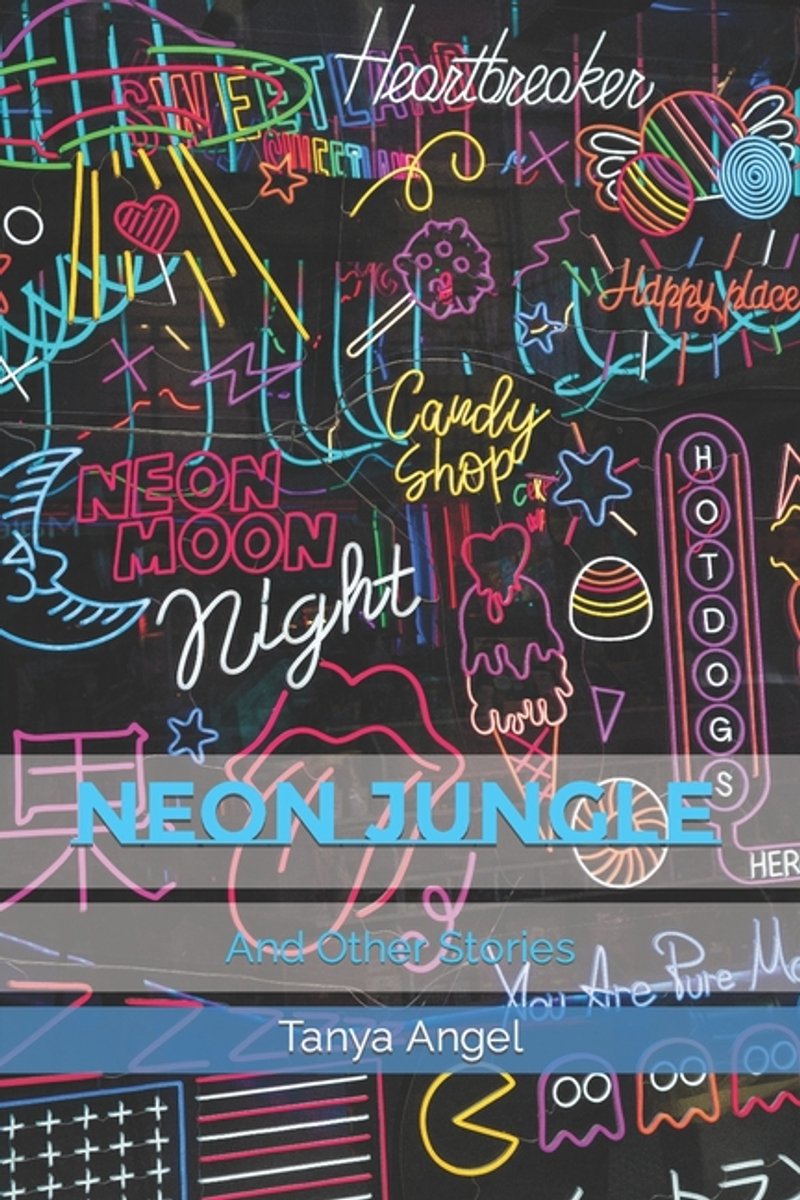 Heartbreaker
SWEETLAND
SWEETLAND
Happy place
Candy
Shop
NEON
MOON
Night
HOTDOGS
HER
果
NEON JUNGLE
And Other Stories
You Are Pure Ma
Tanya Angel